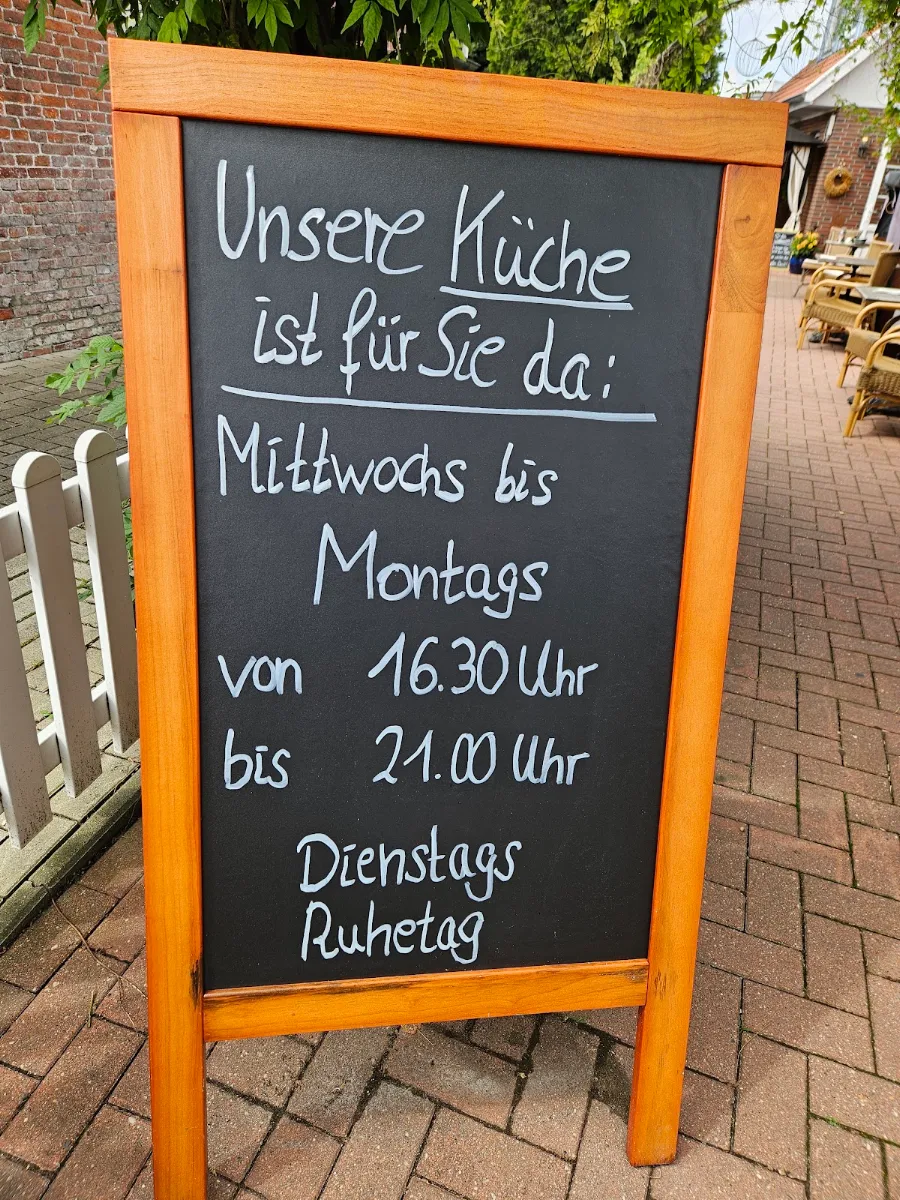 Unsere Küche
ist für Sie da:
Mittwochs bis
Montags
von 16.30 Uhr
bis 21.00 Uhr
Dienstags
Ruhetag